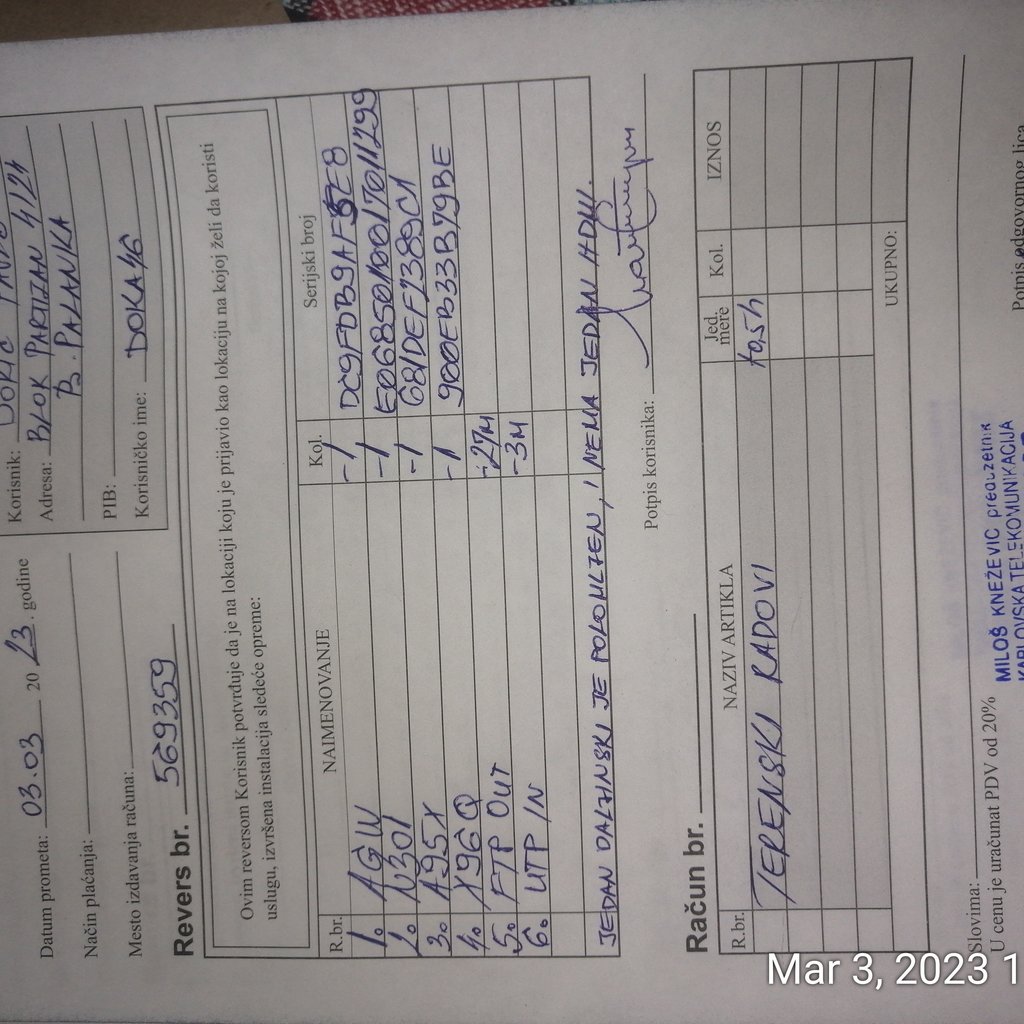 Korisnik:
Adresa: BLOK PARTIZAN 4/24
B. PALANKA
PIB:
Korisničko ime: DOKA46
Datum prometa: 03.03 2023. godine
Način plaćanja:
Mesto izdavanja računa:
Revers br. 569359
Ovim reversom Korisnik potvrđuje da je na lokaciji koju je prijavio kao lokaciju na kojoj želi da koristi
uslugu, izvršena instalacija sledeće opreme:
R.br. NAIMENOVANJE Kol. Serijski broj
1. AGW -1
2. N301 -1 E0685010017011299
3. A95X -1 681DEF1389C1
4. X96Q -1 900EB33B79BE
5. FTP OUT -27M
6. UTP IN -3M
JEDAN DALJINSKI JE POLOMLJEN, I NEMA JEDAN HDMI.
Potpis korisnika:
Račun br.
R.br. NAZIV ARTIKLA Jed. mere Kol. IZNOS
TERENSKI RADOVI
UKUPNO:
Slovima:
U cenu je uračunat PDV od 20%
MILOŠ KNEŽEVIĆ preduzetnik
KARLOVSKA TELEKOMUNIKACIJA
Potpis odgovornog lica
Mar 3, 2023 1